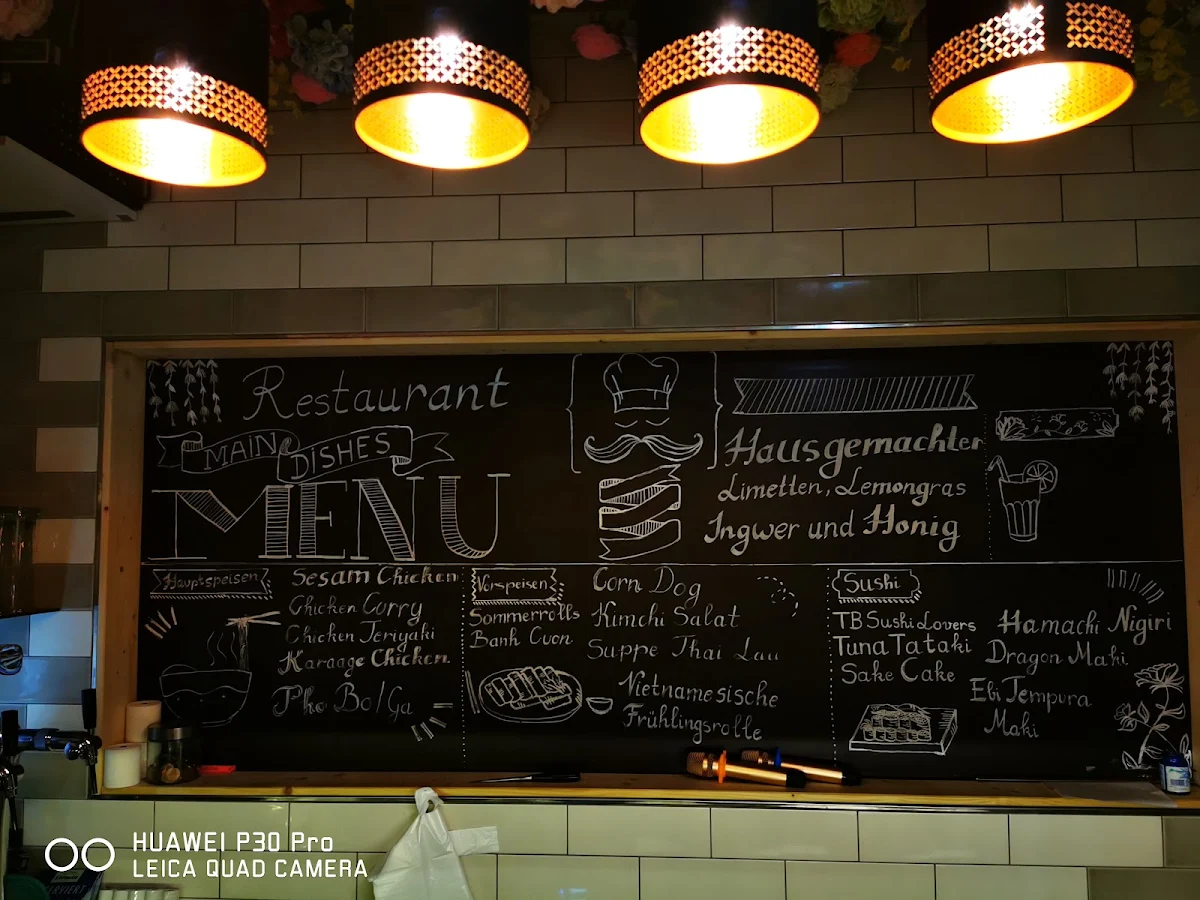 Restaurant
MAIN DISHES
MENU
Hausgemachter
Limetten, Lemongras
Ingwer und Honig
Hauptspeisen
Sesam Chicken
Chicken Curry
Chicken Teriyaki
Karaage Chicken
Pho Bo/Ga
Vorspeisen
Sommerrolls
Banh Cuon
Corn Dog
Kimchi Salat
Suppe Thai Lau
Vietnamesische
Frühlingsrolle
Sushi
TB Sushi Lovers
Tuna Tataki
Sake Cake
Hamachi Nigiri
Dragon Maki
Ebi Tempura
Maki
HUAWEI P30 Pro
LEICA QUAD CAMERA